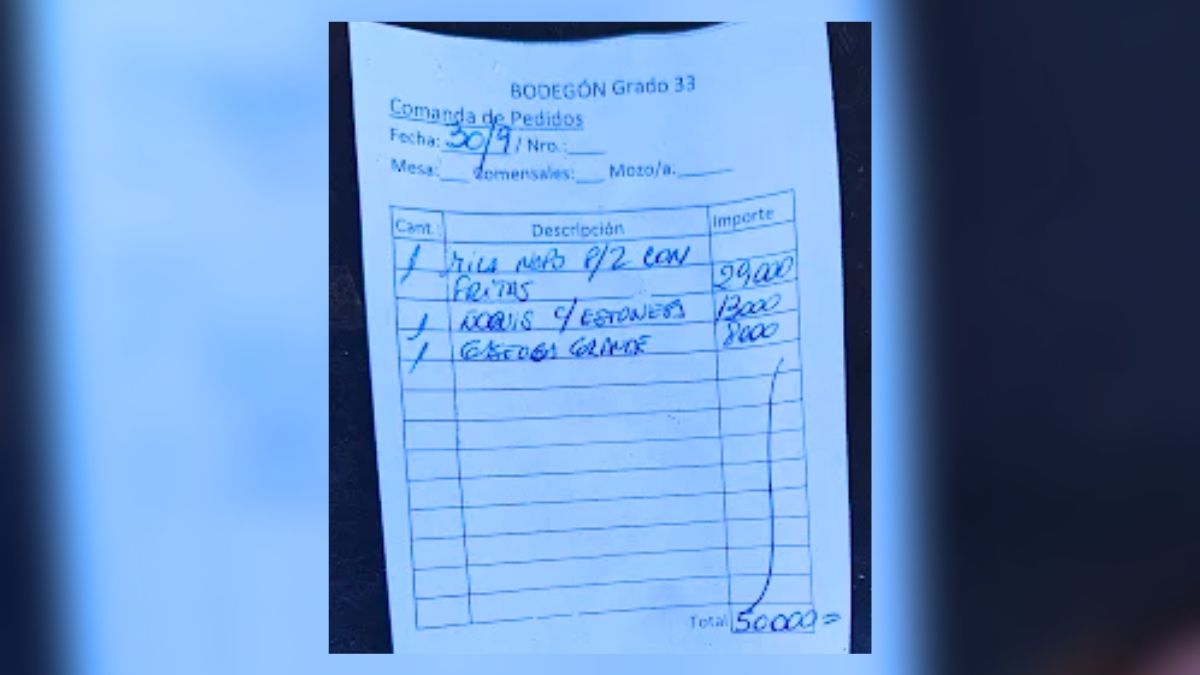 BODEGÓN Grado 33
Comanda de Pedidos
Fecha: 30/9 / Nro.:____
Mesa:___ Comensales:___ Mozo/a:______
Cant. Descripción Importe
1 MILA NAPO P/2 CON
FRITAS 29,000
1 ÑOQUIS C/ 13000
1 GASEOSA GRANDE 8000
Total 50.000=